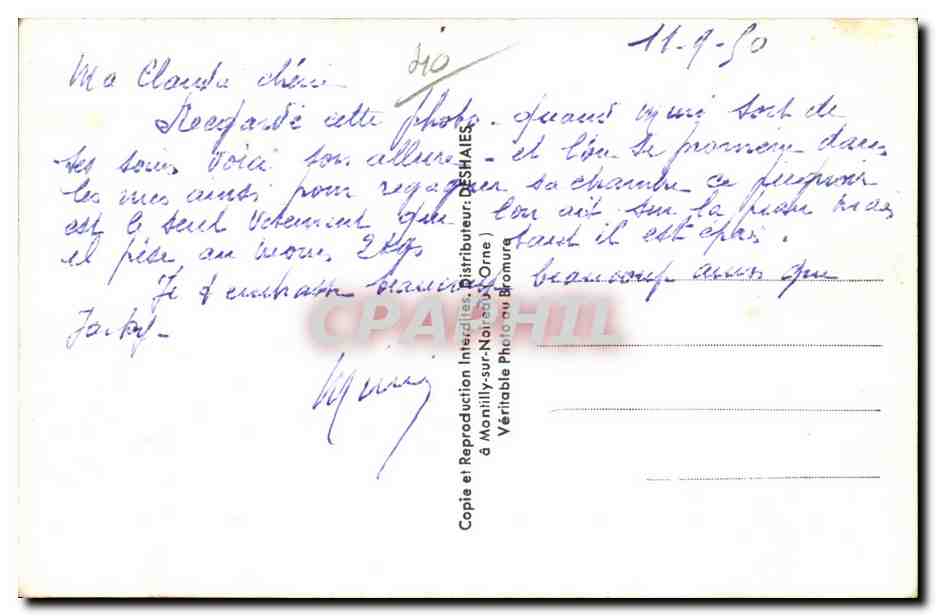 11-9-50
40
Ma Claude chérie
Regarde cette photo - quand mimi sort de
ses soins voici son allure - et l'on se promène dans
les rues ainsi pour regagner sa chambre ce peignoir
est le seul vêtement que l'on ait sur la peau mais
il pèse au moins 2kgs tant il est épais.
Je t'embrasse beaucoup beaucoup ainsi que
Jacky-
Mimi
Copie et Reproduction Interdites. Distributeur: DESHAIES
à Montilly-sur-Noireau (Orne)
Véritable Photo au Bromure
CPAPHIL